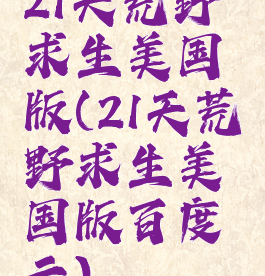 21天荒野
求生美国
版(21天荒
野求生美
国版百度
云)